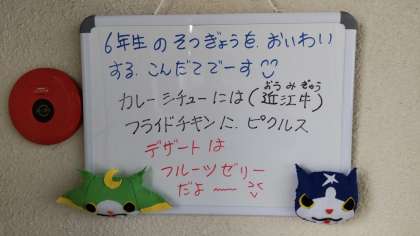 6年生のそつぎょうを、おいわい
する、こんだてでーす
カレーシチューには(近江牛)おうみぎゅう
フライドチキンに、ピクルス
デザートは
フルーツゼリー
だよ〜〜